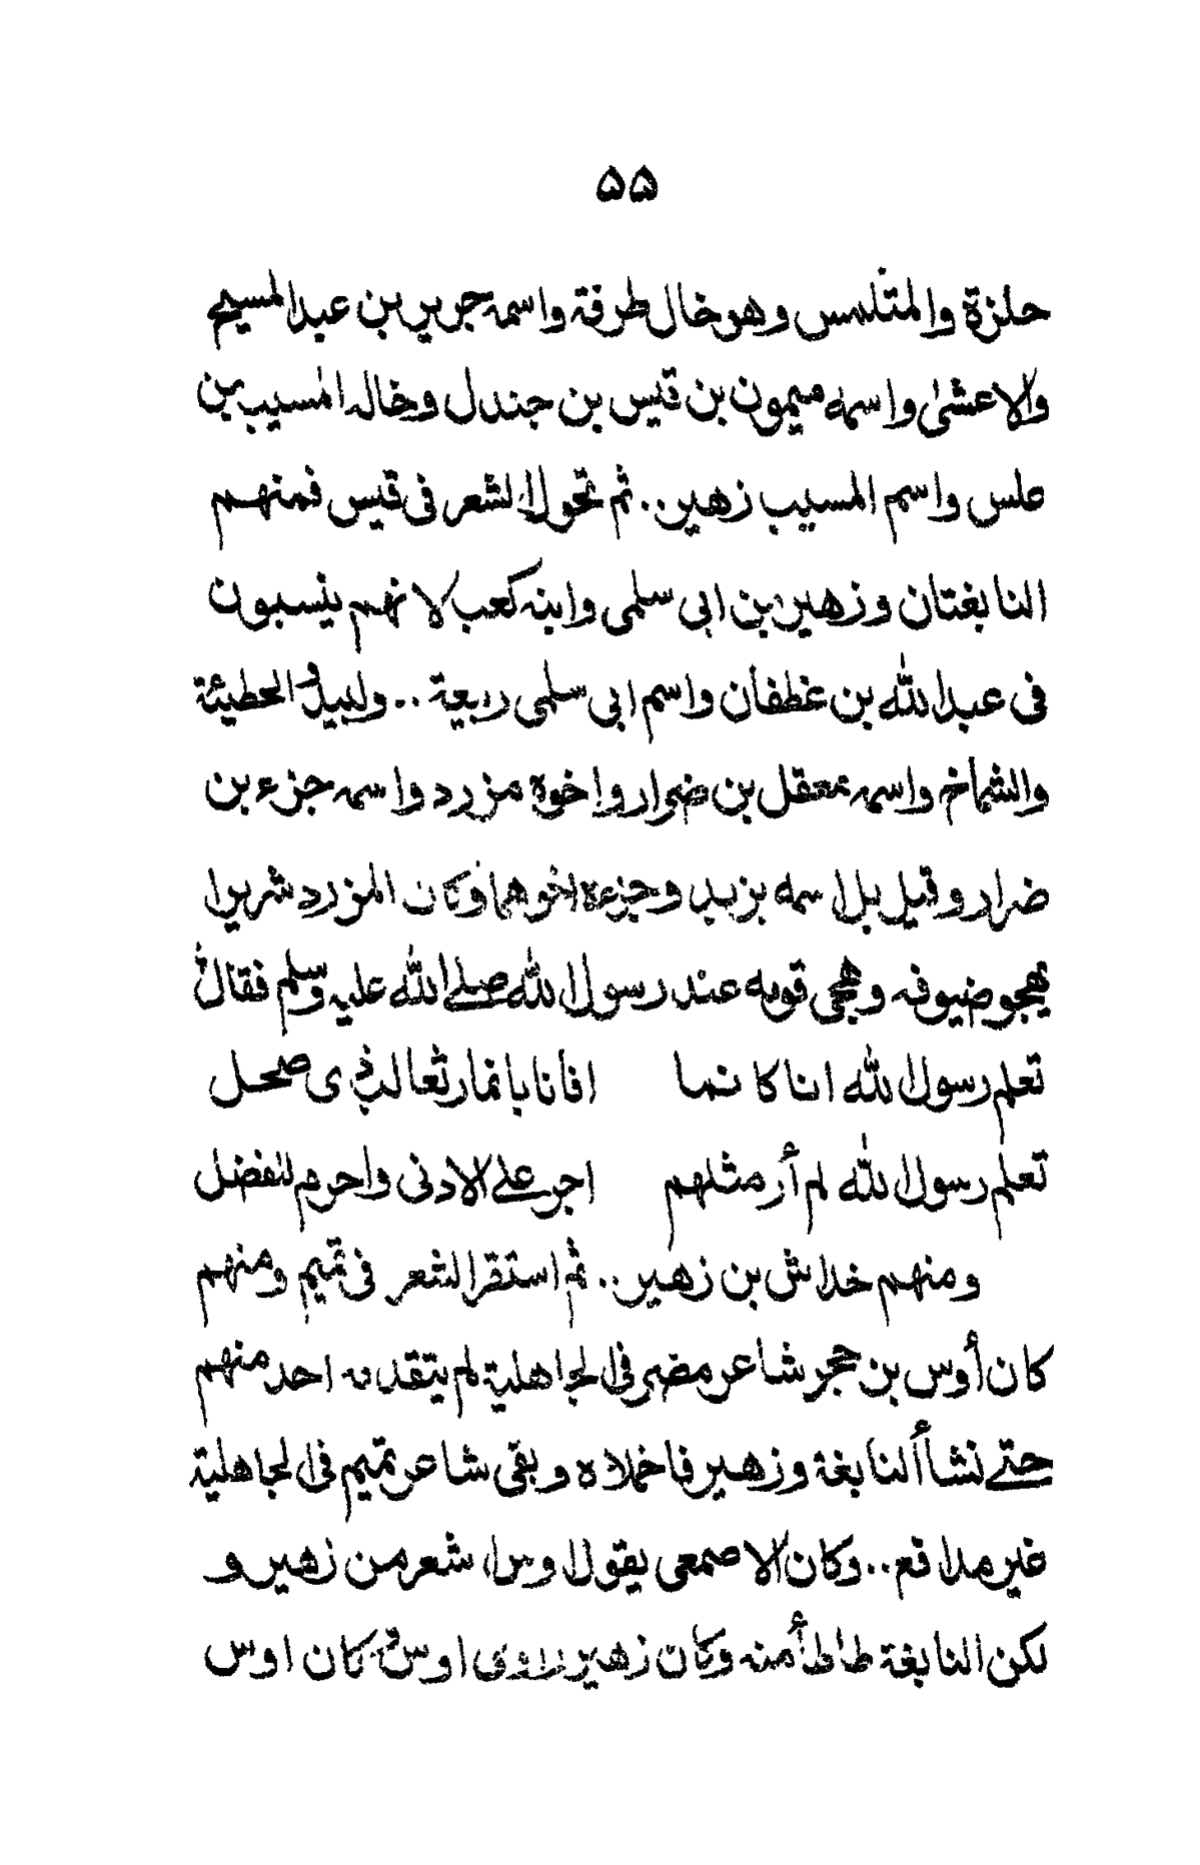 ۵۵
حلزة والمتلمس وهو خال طرفة واسمه جرير بن عبد المسيح
والاعشىٰ واسمه ميمون بن قيس بن جندل وخاله المسيب بن
علس واسم المسيب زهير.. ثم تحول الشعر فى قيس فمنهم
النابغتان وزهير بن ابى سلمى وابنه كعب لانهم ينسبون
فى عبد الله بن غطفان واسم ابى سلمى ربيعة .. ولبيد والحطيئة
والشماخ واسمه معقل بن ضرار واخوه مزرد واسمه جزء بن
ضرار وقيل بل اسمه يزيد وجزء اخوهما وكان المزرد شريرا
يهجو ضيوفه وهجى قومه عند رسول الله صلے الله عليه وسلم فقال
تعلم رسول الله انا كانما افانا بانمار ثعالب ذى صحل
تعلم رسول الله لم أر مثلهم اجر علے الادنى واحرم للفضل
ومنهم خداش بن زهير.. ثم استقر الشعر فى تميم ومنهم
كان أوس بن حجر شاعر مضر فى الجاهلية لم يتقدمه احد منهم
حتے نشأ النابغة وزهير فاخملاه وبقى شاعر تميم فى الجاهلية
غير مدافع.. وكان الاصمعى يقول اوس اشعر من زهير و
لكن النابغة طاطأ منه وكان زهير راوى اوس وكان اوس